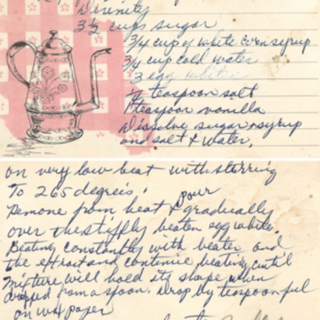 Divinity
3½ cups sugar
3/4 cup of white Corn syrup
3/4 cup cold water
3 egg whites
teaspoon salt
1 teaspoon vanilla
Dissolve sugar & syrup
and salt & water,
on very low heat with stirring
To 265 degreis.
Remone from heat & pour gradually
over the stiffly beaten egg white.
Beating constantly with beater and
the effract and continue beating until
mixture will hold its shape when
dropped from a spoon. drop by teaspoonful
on wax paper